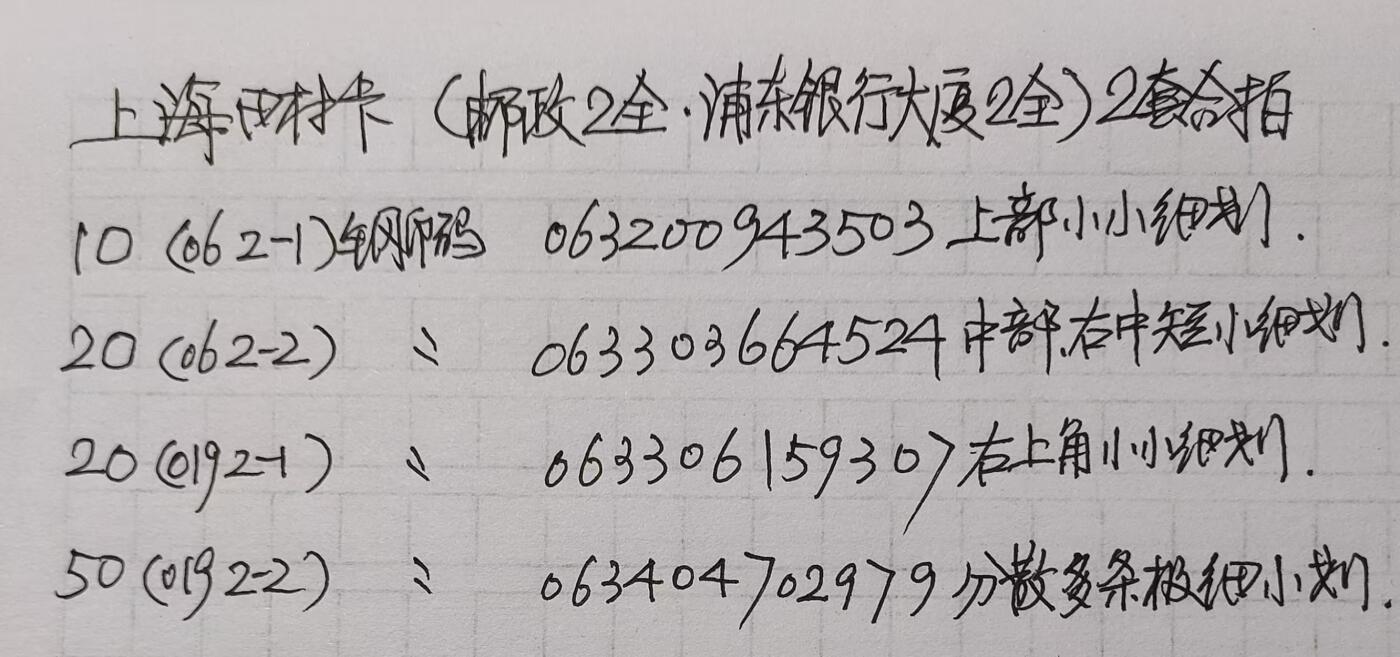 上海田村卡(邮政2全·浦东银行大厦2全)2套合拍
10(062-1)钢印码 063200943503上部小小细划.
20(062-2) 〃 063303664524中部、右中短小细划.
20(0192-1) 〃 063306159307右上角小小细划.
50(0192-2) 〃 063404702979分散多条极细小划.